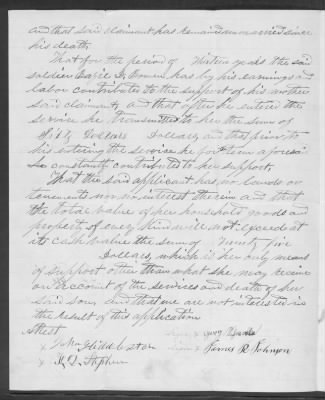 and that said claimant has remained unmarried since
his death.
That for the period of years the said
soldier has by his earnings and
labor contribute to the support of his mother
said claimant, and that after he entered the
service he transmitted to her the sum of
Fifty Dollars Dollars, and that prior to
his entering the service he for term aforesaid
he constantly contributed to her support.
That the said applicant has no lands or
tenements nor no interest therein and that
the total value of her household goods and
property of every kind will not exceed at
its cash value the sum of Twenty five
Dollars, which is her only means
of support other than what she may receive
on account of the services and death of her
said son. And that we are not interested in
the result of this application
Attest
x James R Johnson